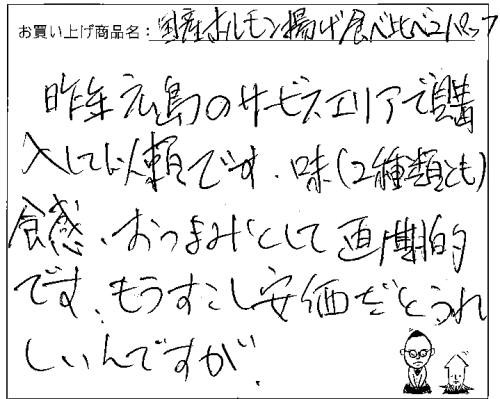 お買い上げ商品名：国産ホルモン揚げ食べ比べ2パック
昨年広島のサービスエリアで購
入して以来頼です．味(2種類とも)
食感、おつまみとして画期的
です、もうすこし安価だとうれ
しいんですが．